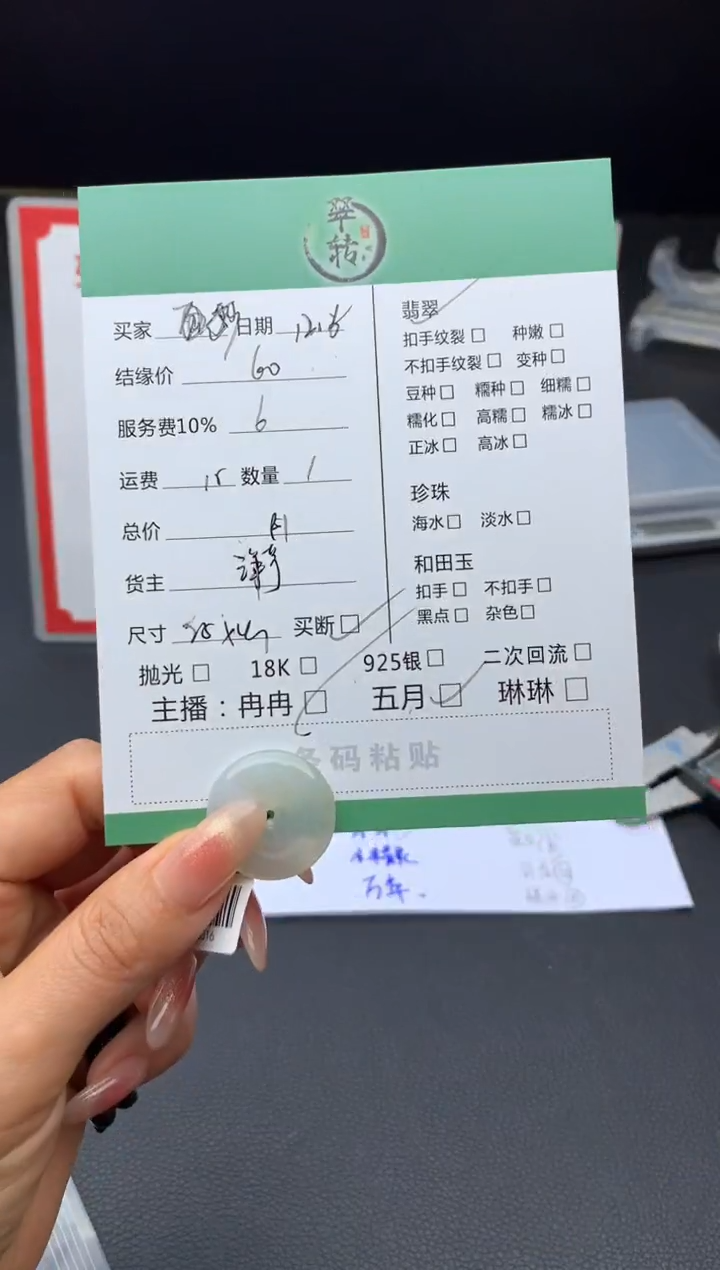 翠转
买家 日期
结缘价 60
服务费10% 6
运费 15 数量 1
总价
货主
尺寸 买断□
翡翠
扣手纹裂□ 种嫩□
不扣手纹裂□ 变种□
豆种□ 糯种□ 细糯□
糯化□ 高糯□ 糯冰□
正冰□ 高冰□
珍珠
海水□ 淡水□
和田玉
扣手□ 不扣手□
黑点□ 杂色□
抛光□ 18K□ 925银□ 二次回流□
主播：冉冉□ 五月□ 琳琳□
条码粘贴